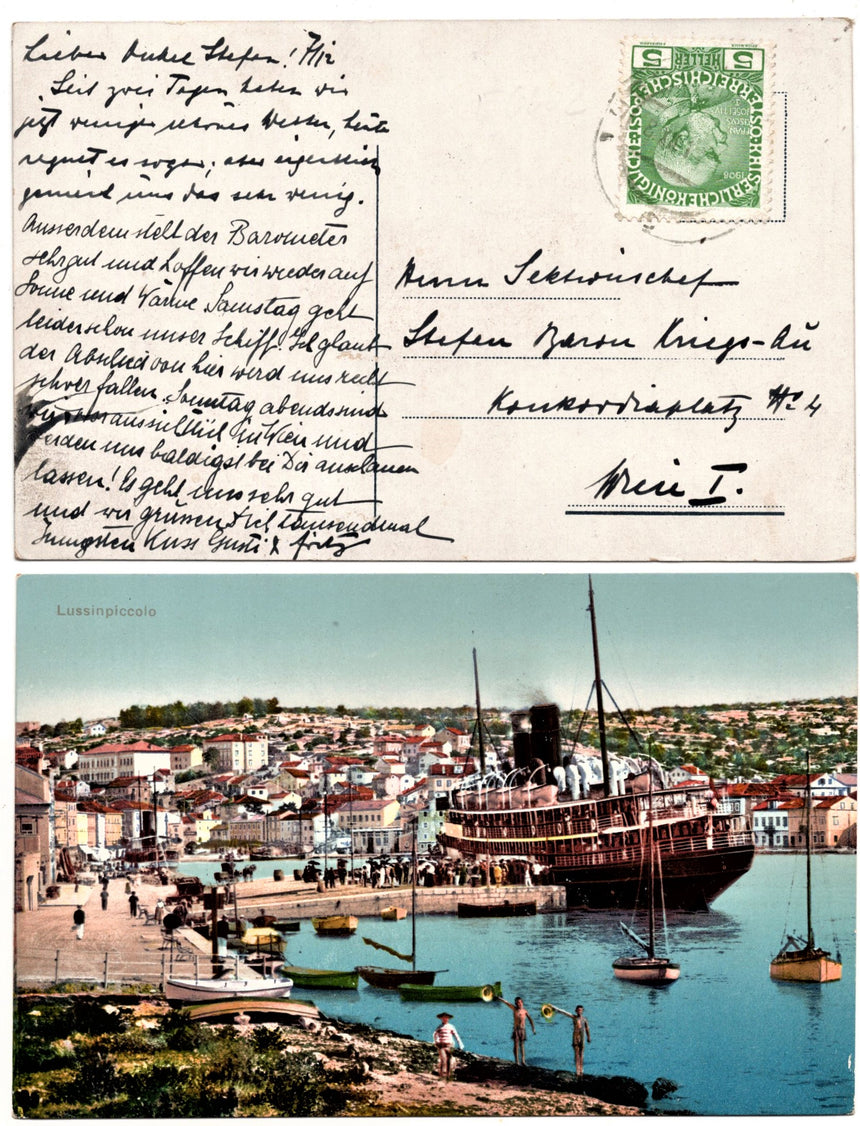 Lieber Onkel Stefan! 7/12
Seit zwei Tagen haben wir
jetzt weniger schönes Wetter, heute
regnet es sogar; aber eigentlich
geniert uns das sehr wenig.
Ausserdem stellt der Barometer
sehr gut und hoffen wir wieder auf
Sonne und Wärme. Samstag geht
leider schon unser Schiff. Ich glaube
der Abschied von hier wird uns recht
schwer fallen. Sonntag abends sind
wir voraussichtlich in Wien und
werden uns baldigst bei Dir anschauen
lassen! Es geht uns sehr gut
und wir grüssen Dich tausendmal
Kuss Gusti & Fritz
5 HELLER 5
KAISERLICHE KÖNIGLICHE ÖSTERREICHISCHE POST
FRANZ JOSEF I
1908
Herrn Sektionschef
Stefan Baron Kriegs-Au
Konkordiaplatz No 4
Wien I.
Lussinpiccolo